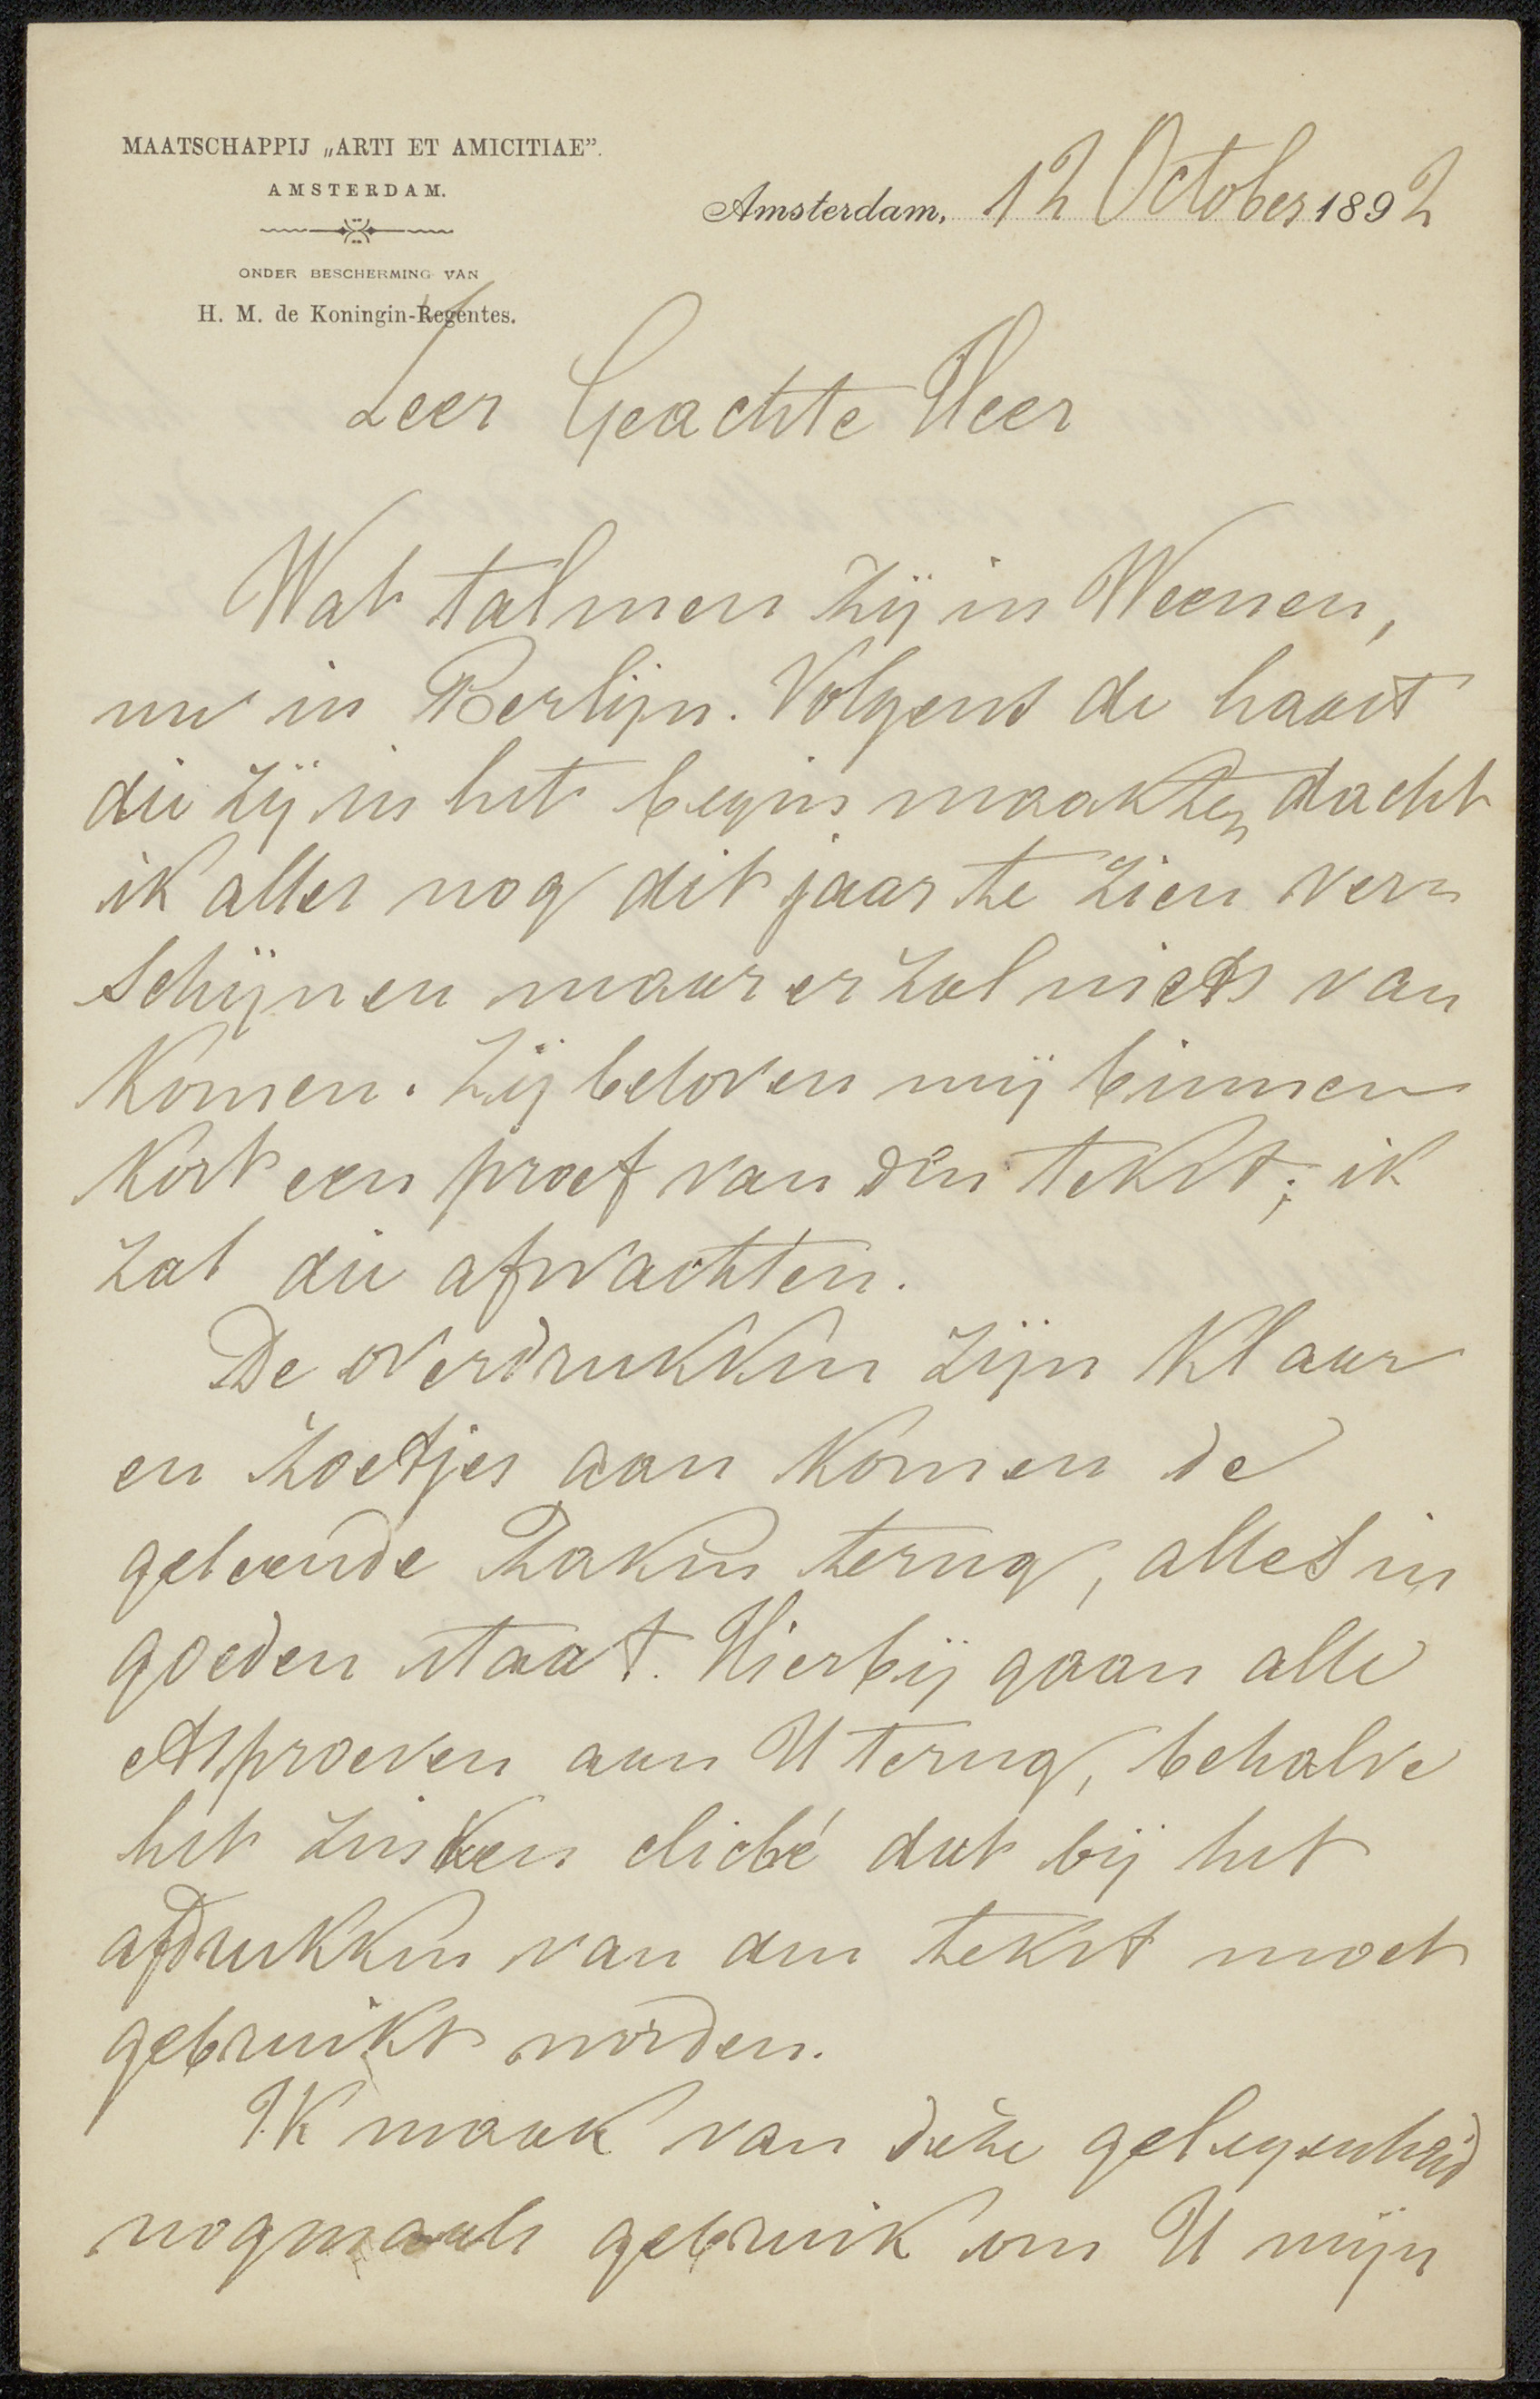 MAATSCHAPPIJ „ARTI ET AMICITIAE”.
AMSTERDAM.
ONDER BESCHERMING VAN
H. M. de Koningin-Regentes.
Amsterdam, 12 October 1892
Zeer Geachte Heer
Wat talmen zij in Weenen,
nu in Berlijn. Volgens de haast
die zij in het begin maakten dacht
ik alles nog dit jaar te zien ver=
schijnen maar er zal niets van
komen. Zij beloven mij binnen
kort een proef van den tekst; ik
zal die afwachten.
De overdrukken zijn klaar
en zoetjes aan komen de
geleende zaken terug, alles in
goeden staat. Hierbij gaan alle
etsproeven aan U terug, behalve
het zinken cliché dat bij het
afdrukken van den tekst moet
gebruikt worden.
Ik maak van deze gelegenheid
nogmaals gebruik om U mijn